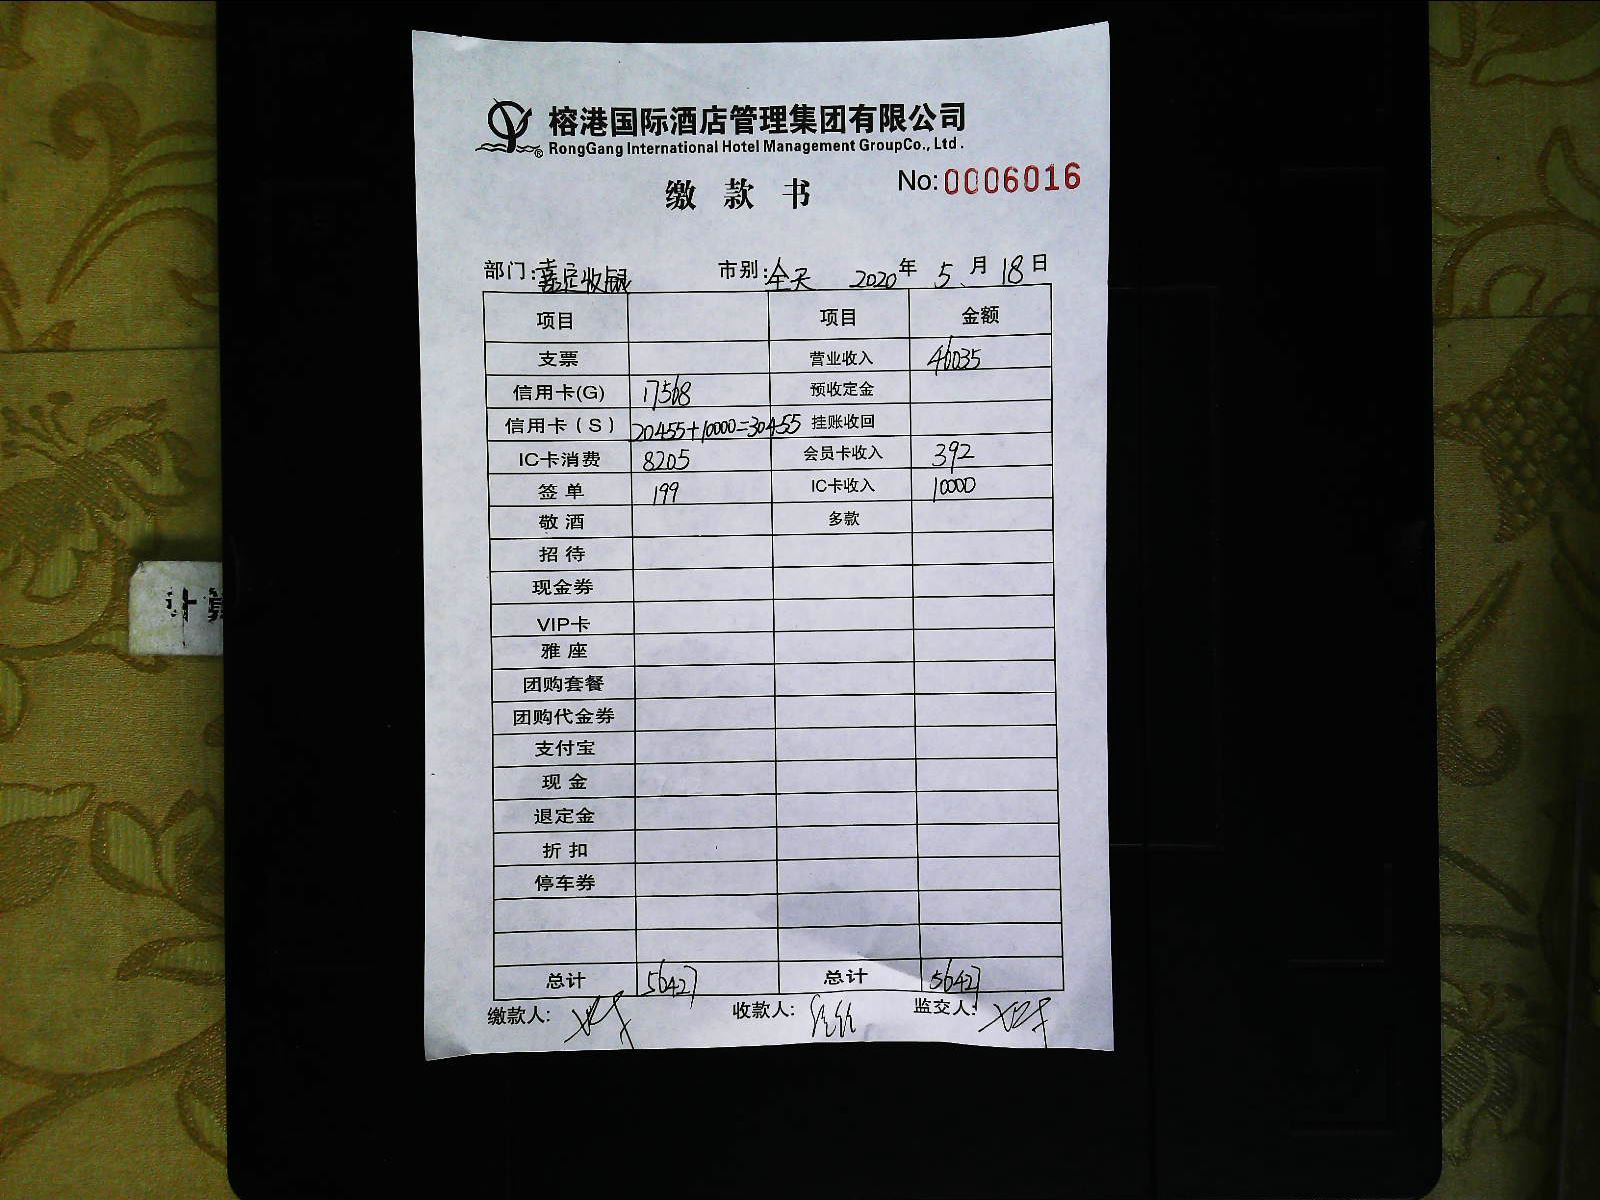 榕港国际酒店管理集团有限公司
RongGang International Hotel Management GroupCo., Ltd.
缴 款 书 No: 0006016
部门: 嘉定收银 市别: 全天 2020 年 5 月 18 日
项目 项目 金额
支票 营业收入 46035
信用卡(G) 17568 预收定金
信用卡(S) 20455+10000=30455 挂账收回
IC卡消费 8205 会员卡收入 392
签 单 199 IC卡收入 10000
敬 酒 多款
招 待
现金券
VIP卡
雅 座
团购套餐
团购代金券
支付宝
现 金
退定金
折 扣
停车券
总计 56427 总计 56427
缴款人: 收款人: 监交人:
计算